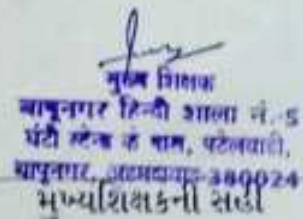 मुख्य शिक्षक
बापूनगर हिन्दी शाला नं.-5
घंटी स्टेन्ड के पास, पटेलवाडी,
बापूनगर, अहमदावाद-380024
મુખ્યશિક્ષકની સહી